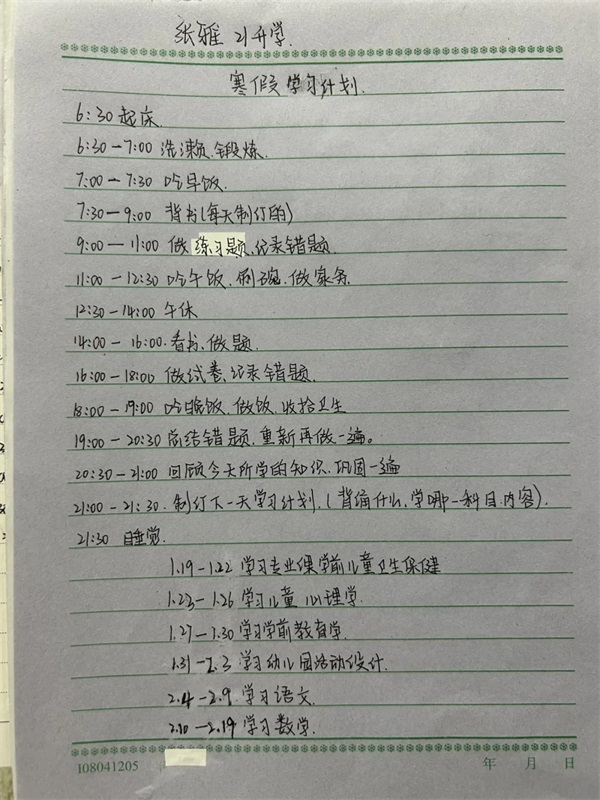 张雅 21升学.
寒假学习计划.
6:30起床
6:30-7:00 洗漱、锻炼.
7:00-7:30 吃早饭.
7:30-9:00 背书(每天制订的)
9:00-11:00 做练习题、记录错题
11:00-12:30 吃午饭.刷碗.做家务.
12:30-14:00 午休
14:00-16:00.看书、做题.
16:00-18:00 做试卷、记录错题.
18:00-19:00 吃晚饭.做饭.收拾卫生
19:00-20:30 总结错题.重新再做一遍。
20:30-21:00 回顾今天所学的知识.巩固一遍
21:00-21:30.制订下一天学习计划.(背诵什么.学哪一科目.内容).
21:30 睡觉.
1.19-1.22 学习专业课学前儿童卫生保健
1.23-1.26 学习儿童心理学.
1.27-1.30 学习学前教育学.
1.31-2.3 学习幼儿园活动设计.
2.4-2.9.学习语文.
2.10-2.19 学习数学.
108041205 年 月 日